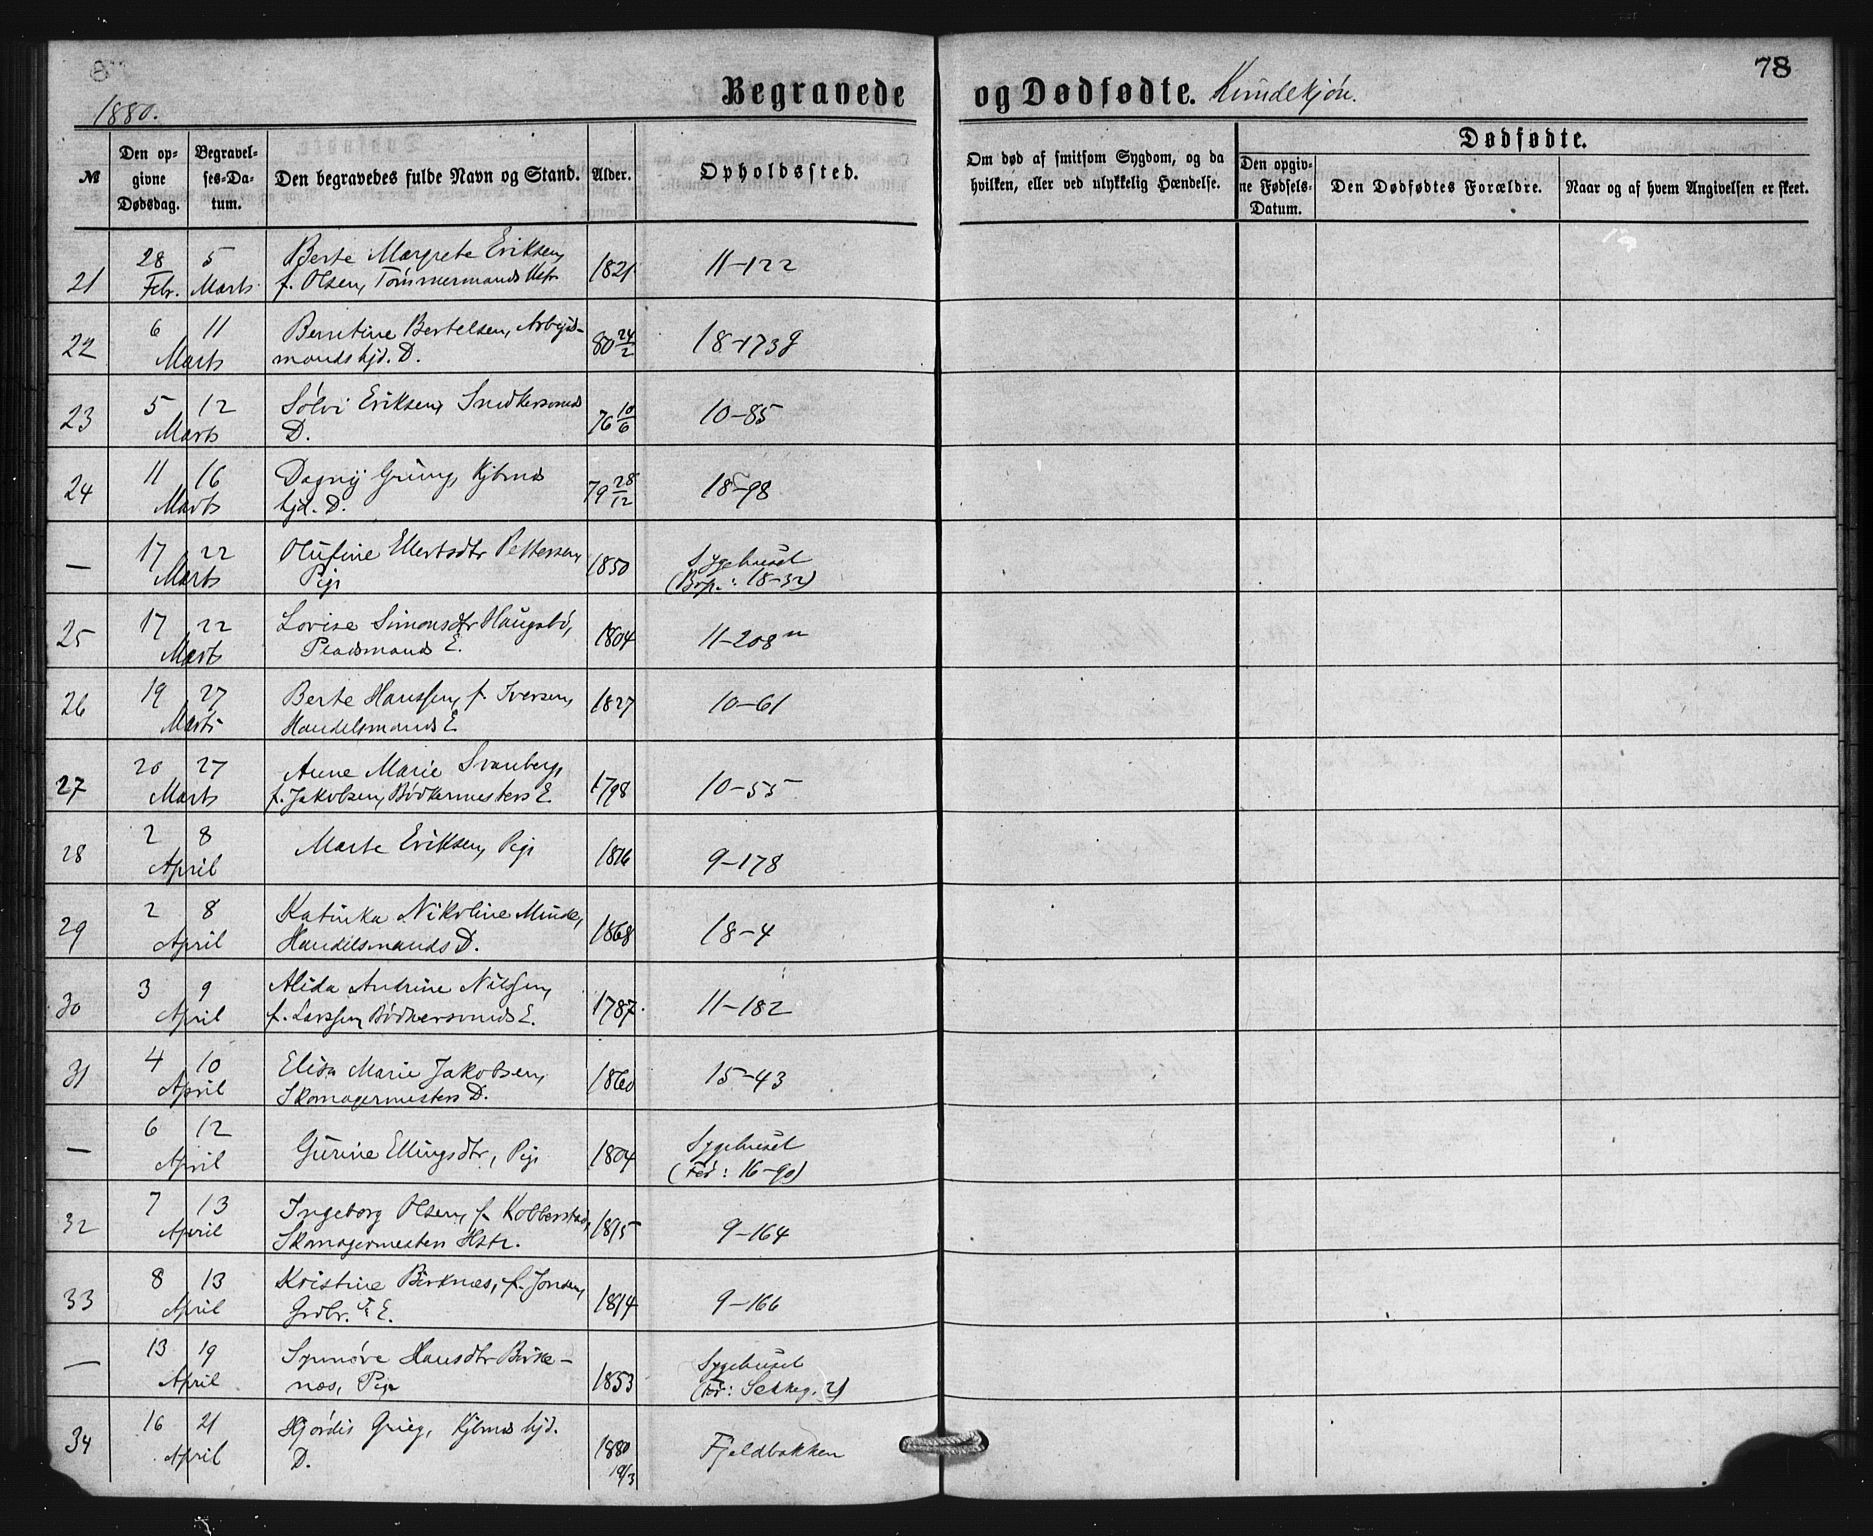 78
1880.
Begravede og Dødfødte. Kvindekjøn.
№ | Den opgivne Dødsdag. | Begravelses-Datum. | Den begravedes fulde Navn og Stand. | Alder. | Opholdssted. | Om død af smitsom Sygdom, og da hvilken, eller ved ulykkelig Hændelse. | Dødfødte. Den opgivne Fødsels-Datum. | Den Dødfødtes Forældre. | Naar og af hvem Angivelsen er skeet.
21 | 28 Febr. | 5 Marts | Berte Margrete Eriksen,
f. Olsen, Tømmermands Hstr | 1821 | 11-122
22 | 6 | 11 Marts | Berntine Bertelsen, Arbejds-
mands hjd. D. | 80 24/2 | 18-173 g
23 | 5 | 12 Marts | Sølvi Eriksen, Snedkersvends
D. | 76 10/6 | 10-85
24 | 11 | 16 Marts | Dagny Grung, Kjbmds
hjd. D. | 79 28/12 | 18-98
— | 17 | 22 Marts | Olufine Ellertsdtr Pettersen,
Pige | 1850 | Sygehuset
(Bop.: 18-32)
25 | 17 | 22 Marts | Lovise Simonsdtr Haugsbø,
Pladsmands E. | 1804 | 11-208
26 | 19 | 27 Marts | Berte Hanssen, f. Iversen,
Handelsmands E | 1827 | 10-61
27 | 20 | 27 Marts | Anne Marie Svanberg,
f. Jakobsen, Bødkermesters E. | 1798 | 10-55
28 | 2 | 8 April | Marte Eriksen, Pige | 1816 | 9-178
29 | 2 | 8 April | Katinka Nikoline Minde,
Handelsmands D. | 1868 | 18-4
30 | 3 | 9 April | Alida Andrine Nilssen,
f. Larssen, Bødkersvends E. | 1787 | 11-182
31 | 4 | 10 April | Elisa Marie Jakobsen,
Skomagermesters D. | 1860 | 15-43
— | 6 | 12 April | Gurine Ellingsdtr, Pige | 1804 | Sygehuset
(Fed: 16-90)
32 | 7 | 13 April | Ingeborg Olsen, f. Kobberstad,
Skomagermesters Hstr. | 1815 | 9-164
33 | 8 | 13 April | Kristine Birknes, f. Jonsen,
Grdbr. E. | 1814 | 9-166
— | 13 | 19 April | Synnøve Hansdtr Birke-
nes, Pige | 1853 | Sygehuset
34 | 16 | 21 April | Hjørdis Grieg, Kjbmds hjd.
D. | 1880 19/3 | Fjeldbakken